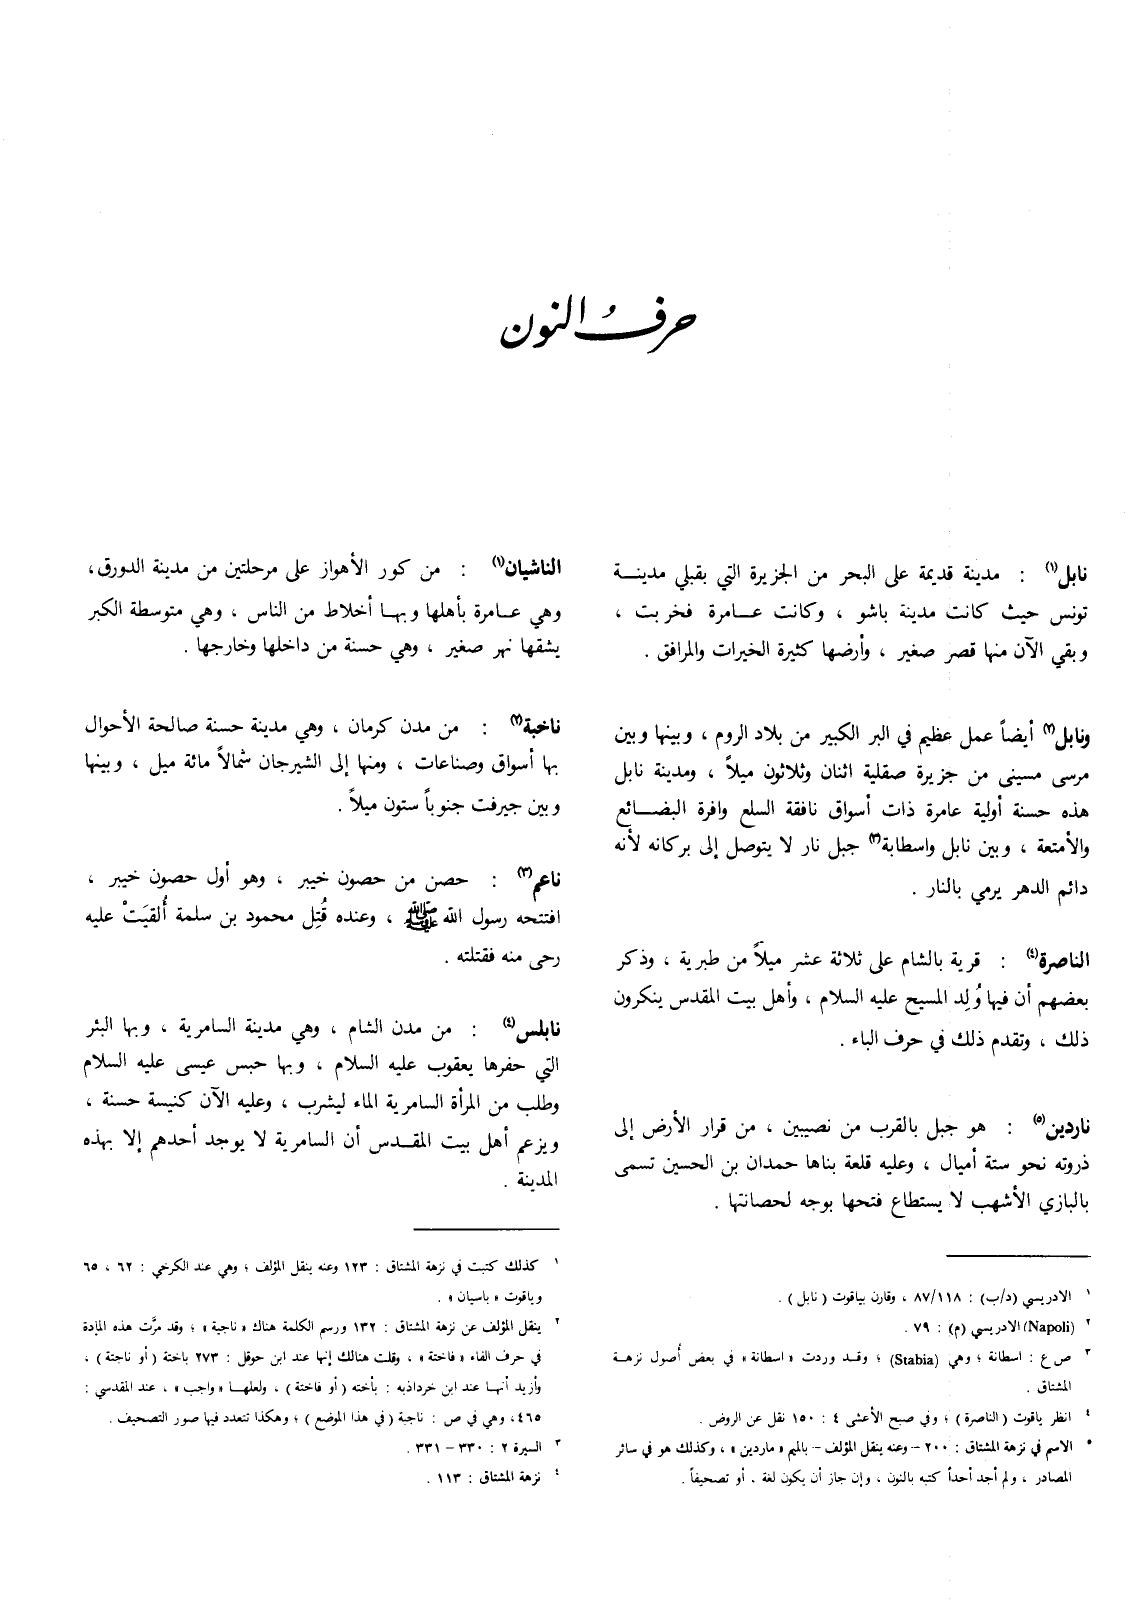 حرف النون
نابل(١) : مدينة قديمة على البحر من الجزيرة التي بقبلي مدينــة
تونس حيث كانت مدينة باشو ، وكانت عــامرة فخربت ،
وبقي الآن منها قصر صغير ، وأرضها كثيرة الخيرات والمرافق .
ونابل(٢) أيضاً عمل عظيم في البر الكبير من بلاد الروم ، وبينها وبين
مرسى مسيني من جزيرة صقلية اثنان وثلاثون ميلاً ، ومدينة نابل
هذه حسنة أولية عامرة ذات أسواق نافقة السلع وافرة البضــائع
والأمتعة ، وبين نابل واسطابة(٣) جبل نار لا يتوصل إلى بركانه لأنه
دائم الدهر يرمي بالنار .
الناصرة(٤) : قرية بالشام على ثلاثة عشر ميلاً من طبرية ، وذكر
بعضهم أن فيها وُلِد المسيح عليه السلام ، وأهل بيت المقدس ينكرون
ذلك ، وتقدم ذلك في حرف الباء .
ناردين(٥) : هو جبل بالقرب من نصيبين ، من قرار الأرض إلى
ذروته نحو ستة أميال ، وعليه قلعة بناها حمدان بن الحسين تسمى
بالبازي الأشهب لا يستطاع فتحها بوجه لحصانتها .
١ الادريسي (د/ب) : ٨٧/١١٨ ، وقارن بياقوت ( نابل ) .
٢ (Napoli) الادريسي (م) : ٧٩ .
٣ ص ع : اسطانة ؛ وهي (Stabia) ؛ وقــد وردت « اسطانة » في بعض أُصول نزهــة
المشتاق .
٤ انظر ياقوت ( الناصرة ) ؛ وفي صبح الأعشى ٤ : ١٥٠ نقل عن الروض .
٥ الاسم في نزهة المشتاق : ٢٠٠ – وعنه ينقل المؤلف – بالميم « ماردين » ، وكذلك هو في سائر
المصادر ، ولم أجد أحداً كتبه بالنون ، وإن جاز أن يكون لغة . أو تصحيفاً .
الناشيان(١) : من كور الأهواز على مرحلتين من مدينة الدورق ،
وهي عــامرة بأهلها وبهــا أخلاط من الناس ، وهي متوسطة الكبر
يشقها نهر صغير ، وهي حسنة من داخلها وخارجها .
ناخبة(٢) : من مدن كرمان ، وهي مدينة حسنة صالحة الأحوال
بها أسواق وصناعات ، ومنها إلى الشيرجان شمالاً مائة ميل ، وبينها
وبين جيرفت جنوباً ستون ميلاً .
ناعم(٣) : حصن من حصون خيبر ، وهو أول حصون خيبر ،
افتتحه رسول الله ﷺ ، وعنده قُتِل محمود بن سلمة أُلقيَتْ عليه
رحى منه فقتلته .
نابلس(٤) : من مدن الشام ، وهي مدينة السامرية ، وبها البئر
التي حفرها يعقوب عليه السلام ، وبها حبس عيسى عليه السلام
وطلب من المرأة السامرية الماء ليشرب ، وعليه الآن كنيسة حسنة ،
ويزعم أهل بيت المقــدس أن السامرية لا يوجد أحدهم إلا بهذه
المدينة .
١ كذلك كتبت في نزهة المشتاق : ١٢٣ وعنه ينقل المؤلف ؛ وهي عند الكرخي : ٦٢ ، ٦٥
وياقوت « باسيان » .
٢ ينقل المؤلف عن نزهة المشتاق : ١٣٢ ورسم الكلمة هناك « ناجية » ؛ وقد مرَّت هذه المادة
في حرف الفاء « فاختة » ، وقلت هنالك إنها عند ابن حوقل : ٢٧٣ باختة ( أو ناجتة ) ،
وأزيد أنهــا عند ابن خرداذبه : بأخته ( أو فاختة ) ، ولعلهــا « واجب » ، عند المقدسي :
٤٦٥ ، وهي في ص : ناجبة ( في هذا الموضع ) ؛ وهكذا تتعدد فيها صور التصحيف .
٣ السيرة ٢ : ٣٣٠ – ٣٣١ .
٤ نزهة المشتاق : ١١٣ .